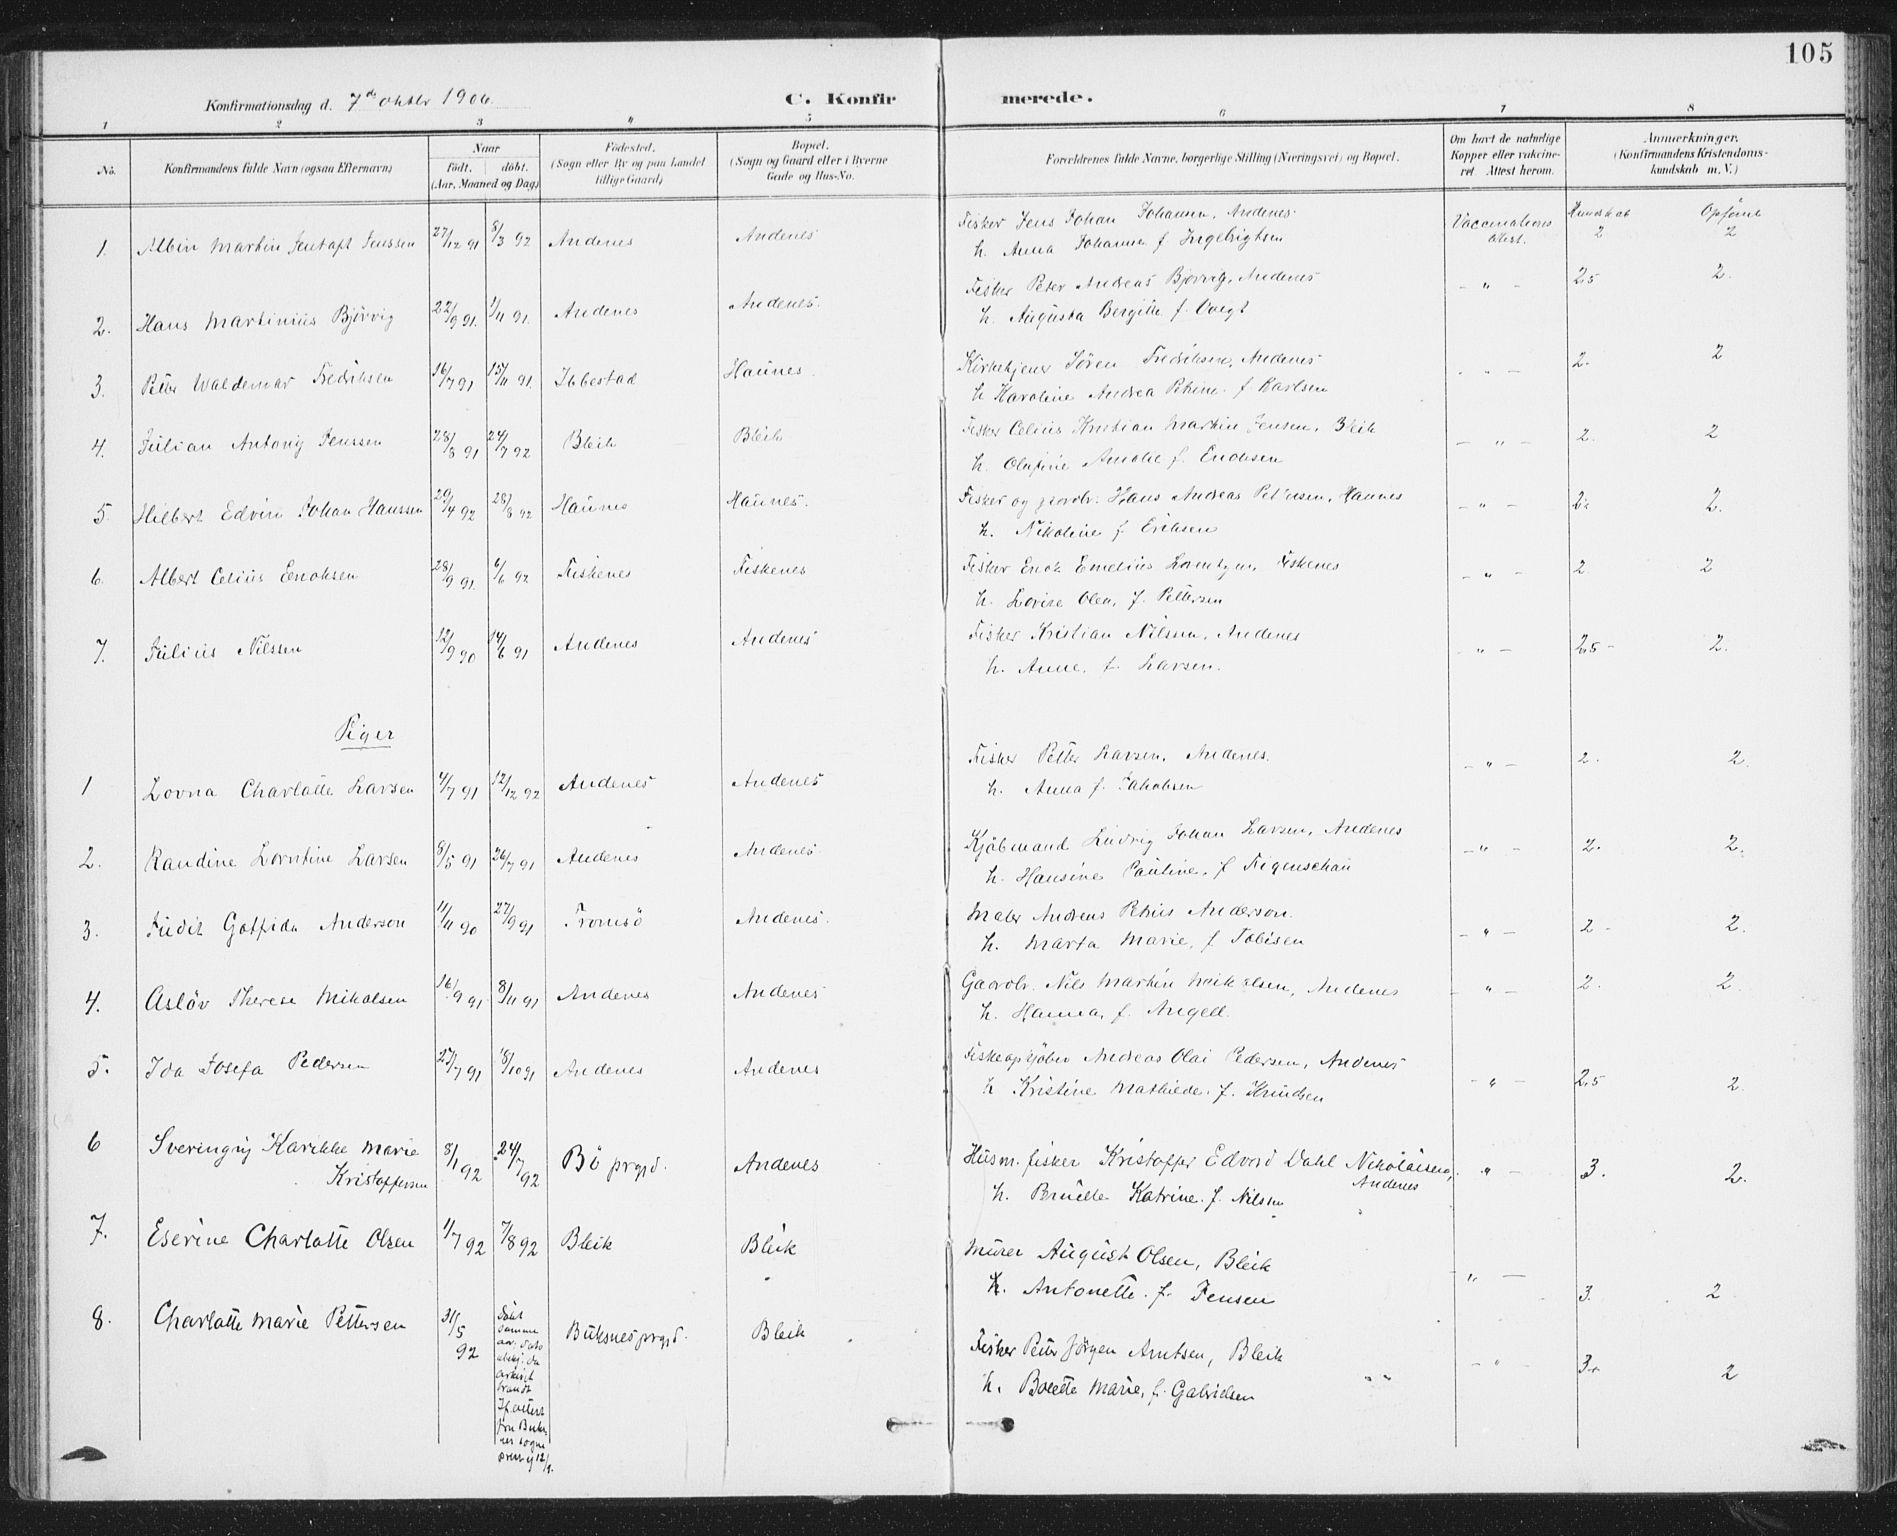 105
Konfirmationsdag d. 7de oktbr 1906.
C. Konfirmerede.
1 2 3 4 5 6 7 8
No. Konfirmandens fulde Navn (ogsaa Efternavn) Naar født. døbt. (Aar, Maaned og Dag) Fødested. (Sogn eller By og paa Landet tillige Gaard) Bopæl. (Sogn og Gaard eller i Byerne Gade og Hus-No. Forældrenes fulde Navne, borgerlige Stilling (Næringsvei) og Bopæl. Om havt de naturlige Kopper eller vakcineret Attest herom. Anmærkninger. (Konfirmandens Kristendomskundskab m. V.)
1. Albin Martin Jenssen 27/12 91 8/3 92 Andenes Andenes Fisker Jens Johan Johansen, Andenes Vaccinations attest. Kundskab 2 Opførsel 2
h. Anna Johanna f. Ingebrigtsen
2. Hans Martinius Bjørvig 22/9 91. 1/11 91. Andenes Andenes. Fisker Peter Andreas Bjørvig, Andenes - " - 2,5 2.
h. Augusta Bergitte f. Voigt
3. Peter Waldemar Fredriksen 16/7 91 15/11 91. Ibbestad Haunes. Kirketjener Søren Fredriksen, Andenes - " - 2. 2
h Karoline Andrea Petrine f. Karlsen
4. Julian Antonij Jenssen 28/8 91 24/7 92 Bleik Bleik Fisker Celius Kristian Martin Jensen, Bleik - " - 2. 2
h. Olufine Amalie f. Enoksen
5. Hilbert Edvin Johan Hanssen 29/4 92 28/8 92 Haunes Haunes. Fisker og gaardbr. Hans Andreas Petersen, Haunes - " - 2. 2.
h. Nikoline f. Eriksen
6. Albert Celius Enoksen 28/9 91. 6/6 92 Fiskenes Fiskenes Fisker Enok Emelius Lorentzen, Fiskenes - " - 2 2
h. Lovise Olea, f. Pettersen
7. Julius Nilssen 12/9 90 14/6 91 Andenes Andenes Fisker Kristian Nilsen, Andenes - " - 2,5 - 2.
h. Anne, f. Larsen.
Piger
1 Lovna Charlotte Larsen 4/7 91 12/12 92 Andenes Andenes Fisker Petter Larsen, Andenes. - " - 2. 2.
h. Anna f. Jakobsen
2. Randine Lorntine Larsen 8/5 91 26/7 91 Andenes Andenes Kjøbmand Ludvig Johan Larsen, Andenes - " - 2. 2.
h. Hansine Pauline, f Figenschau
3. Judit Gotfida Anderson 11/11 90 27/9 91 Tromsö Andenes. Maler Andreas Petrus Anderson. - " - 2 - 2.
h. Marta Marie, f Tobisen
4. Asløv Therese Mikalsen 16/9 91 8/11 91 Andenes Andenes Gaardbr. Nils Martin Mikalsen, Andenes - " - 2. 2.
h. Hanna, f. Angell.
5. Ida Josefa Pedersen 27/7 91 18/10 91 Andenes Andenes Fiskeopkjøber Andreas Olai Pedersen, Andenes - " - 2,5 2.
h Kristine Mathilde. f. Knudsen
6 Karikke Marie Kristoffersen 8/1 92 24/7 92 Bö prgjd. Andenes Husm. fisker Kristoffer Edvard Dahl Nikolaisen, Andenes " - 3. 2.
h. Katrine. f. Nilsen
7. Eserine Charlotte Olsen 1/7 92 7/8 92 Bleik Bleik Murer August Olsen, Bleik - " - 3. 2
h. Antonette. f. Jensen
8. Charlotte Marie Pettersen 31/5 92 Døbt samme aar, dato ubekj. da arkivet brændt If. attest fra Buksnes sogneprest Buksnes prgjd. Bleik Fisker Peter Jørgen Arntsen, Bleik - " - 3. 2
h. Marie, f. Gabrielsen